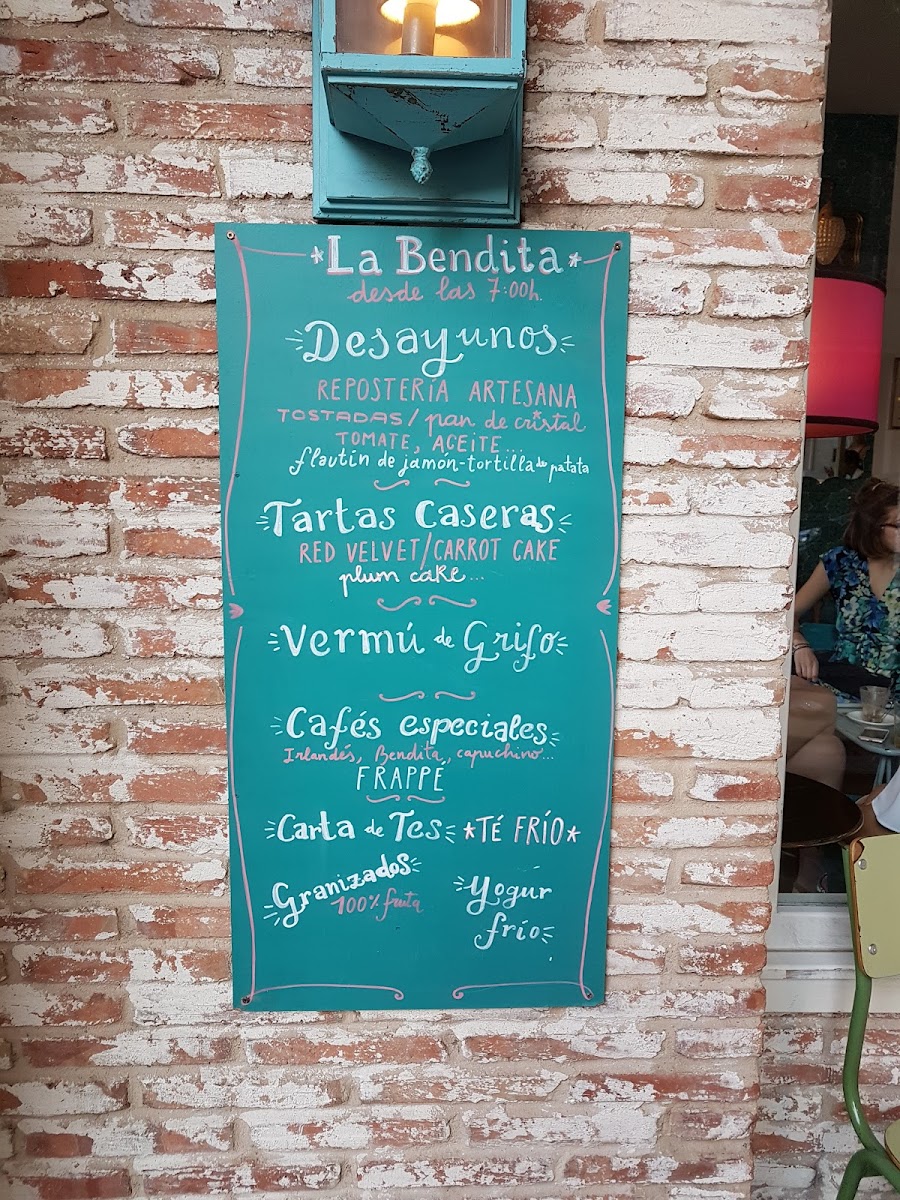 *La Bendita*
desde las 7:00h.
Desayunos
REPOSTERÍA ARTESANA
TOSTADAS/pan de cristal
TOMATE, ACEITE...
flautín de jamón-tortilla de patata
Tartas Caseras
RED VELVET/CARROT CAKE
plum cake...
Vermú de Grifo
Cafés especiales
Irlandés, Bendita, capuchino...
FRAPPÉ
Carta de Tes *TÉ FRÍO*
Granizados
100% fruta
Yogur
frío